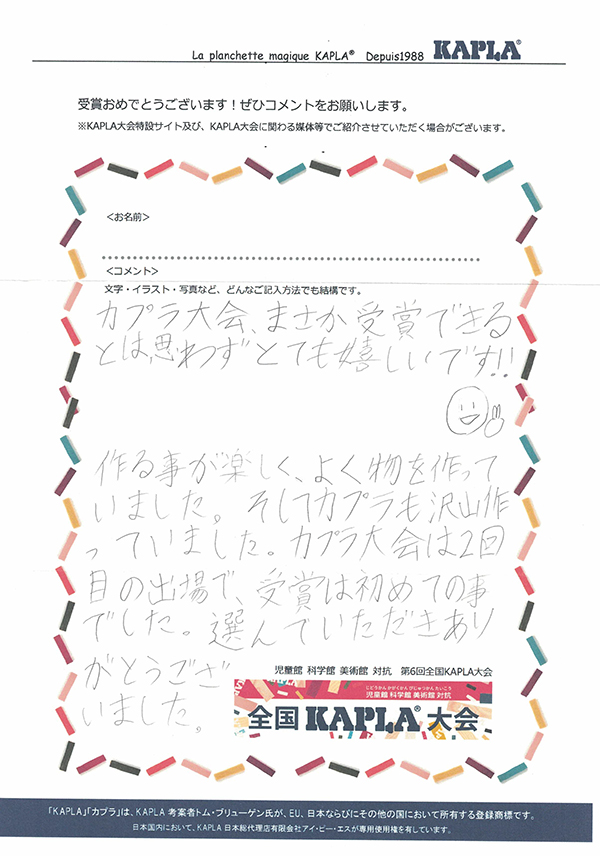 La planchette magique KAPLA® Depuis1988 KAPLA®
受賞おめでとうございます！ぜひコメントをお願いします。
※KAPLA大会特設サイト及び、KAPLA大会に関わる媒体等でご紹介させていただく場合がございます。
<お名前>
<コメント>
文字・イラスト・写真など、どんなご記入方法でも結構です。
カプラ大会、まさか受賞できる
とは思わずとても嬉しいです!!
作る事が楽しく、よく物を作って
いました。そしてカプラも沢山作
っていました。カプラ大会は2回
目の出場で、受賞は初めての事
でした。選んでいただきあり
がとうござ
いました。
児童館 科学館 美術館 対抗 第6回全国KAPLA大会
じどうかん かがくかん びじゅつかん たいこう
児童館 科学館 美術館 対抗
全国KAPLA®大会
「KAPLA」「カプラ」は、KAPLA 考案者トム・ブリューゲン氏が、EU、日本ならびにその他の国において所有する登録商標です。
日本国内において、KAPLA 日本総代理店有限会社アイ・ピー・エスが専用使用権を有しています。